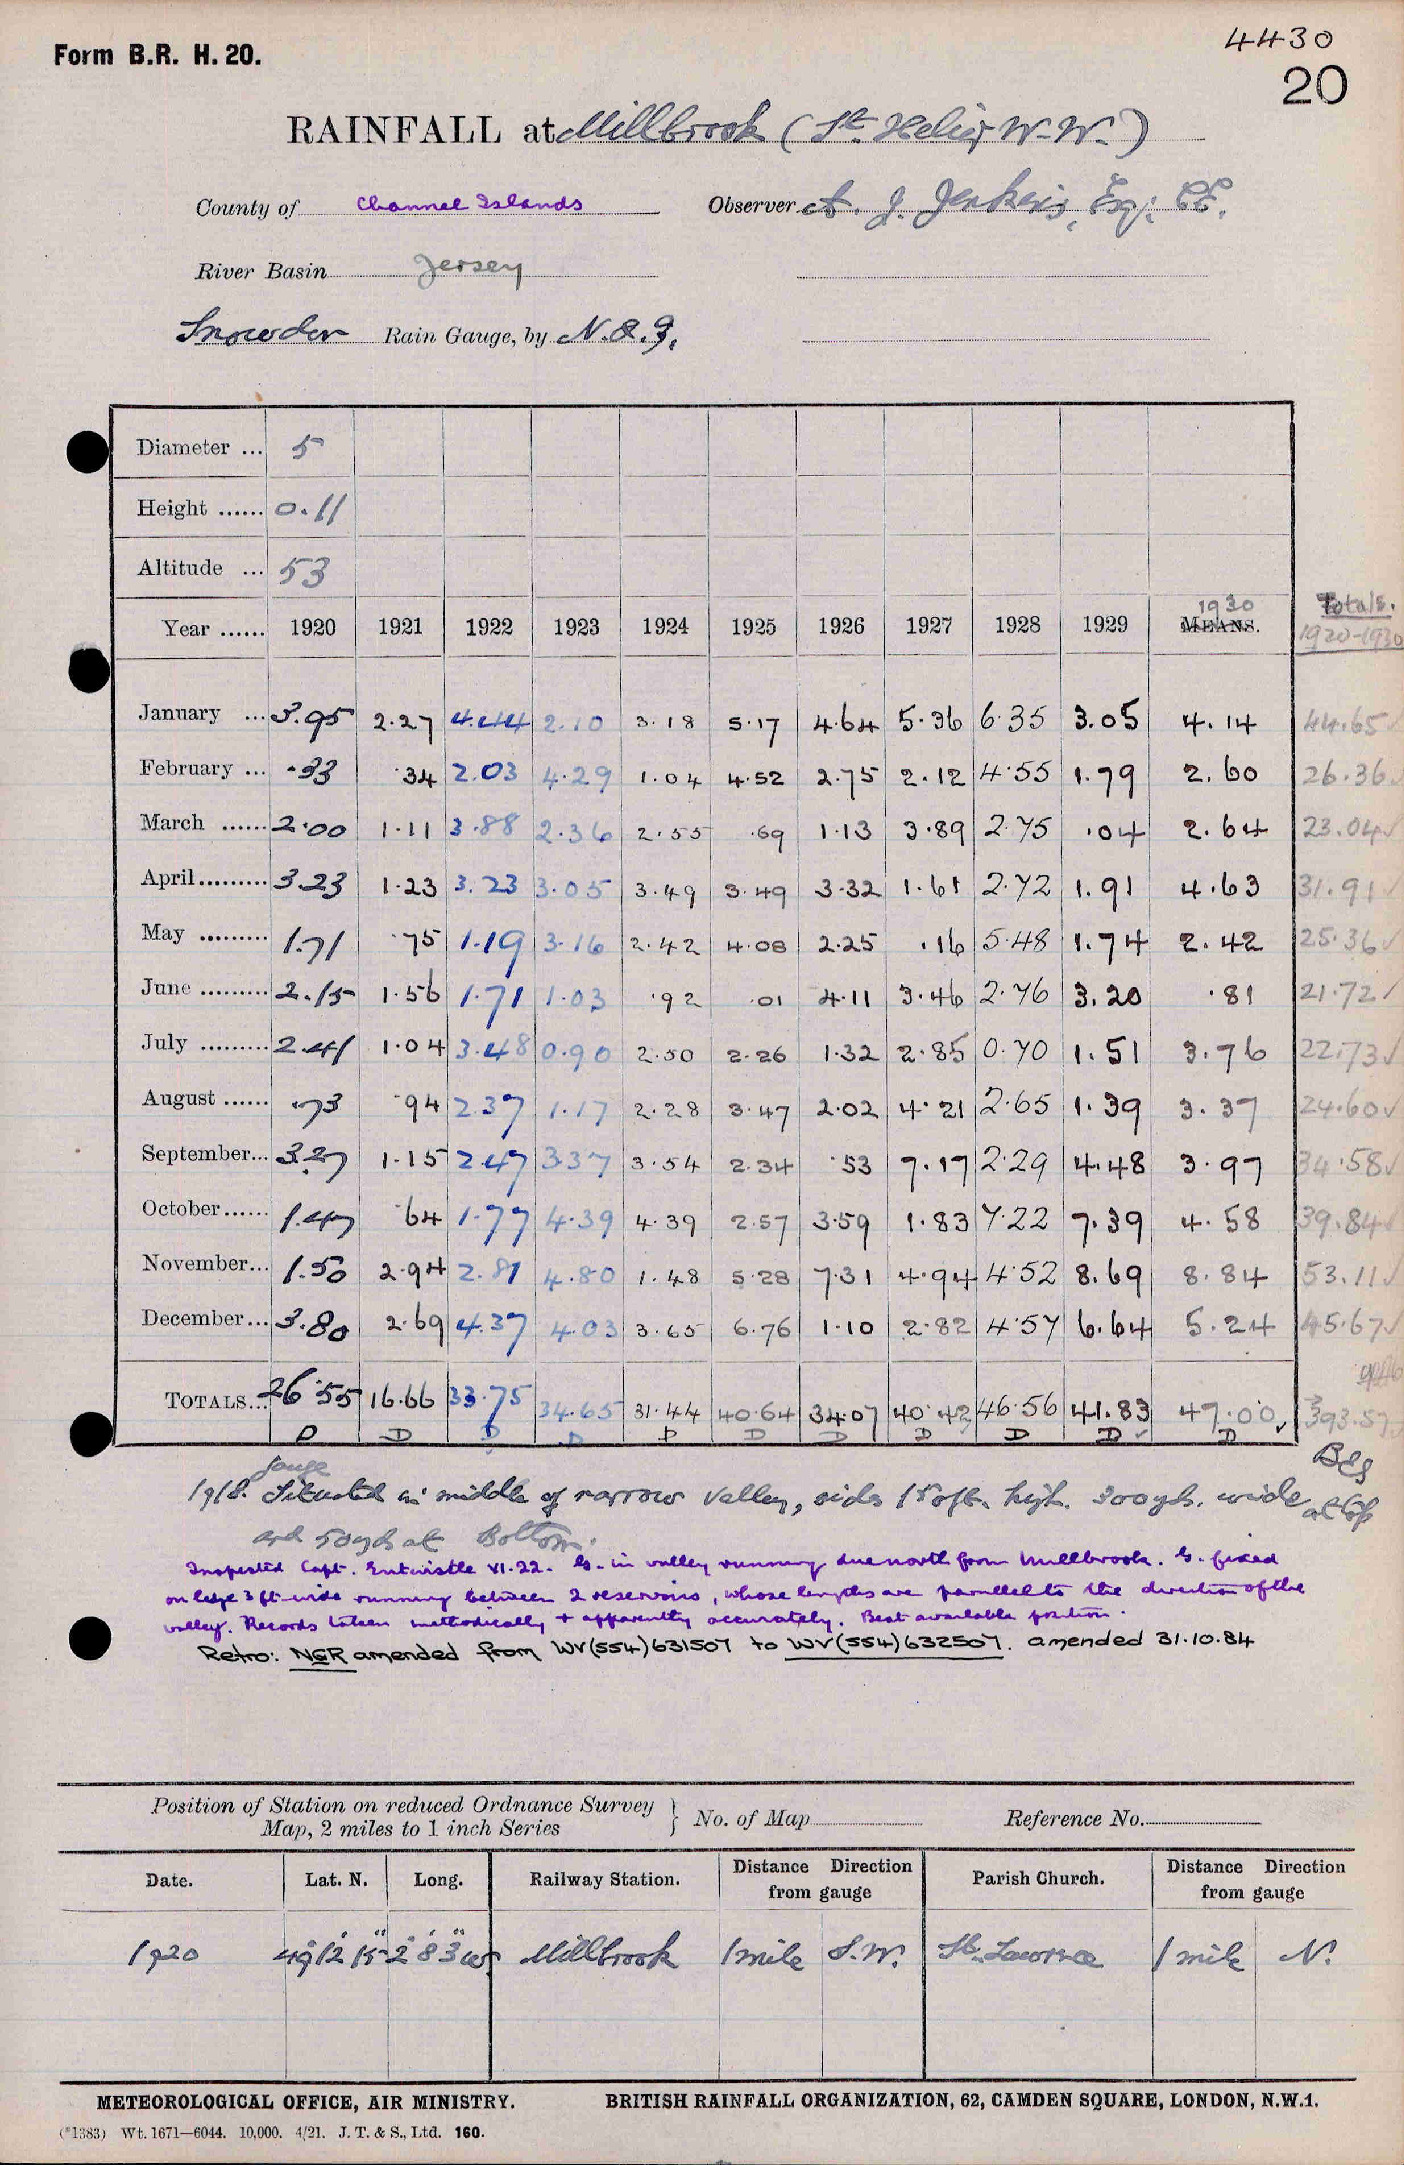 Form B.R. H. 20.
4430
20
RAINFALL at Millbrook (St. Helier W.W.)
County of Channel Islands Observer A. J. Jenkins, Esq; C.E.
River Basin Jersey
Snowdon Rain Gauge, by N.&Z.
Diameter ... 5
Height ...... 0.11
Altitude ... 53
1930 Totals.
Year ...... 1920 1921 1922 1923 1924 1925 1926 1927 1928 1929 MEANS. 1920-1930
January ... 3.95 2.27 4.44 2.10 3.18 5.17 4.64 5.36 6.35 3.05 4.14 44.65✓
February ... .33 .34 2.03 4.29 1.04 4.52 2.75 2.12 4.55 1.79 2.60 26.36✓
March ...... 2.00 1.11 3.88 2.36 2.55 .69 1.13 3.89 2.75 .04 2.64 23.04✓
April......... 3.23 1.23 3.23 3.05 3.49 3.49 3.32 1.61 2.72 1.91 4.63 31.91✓
May ......... 1.71 .75 1.19 3.16 2.42 4.08 2.25 .16 5.48 1.74 2.42 25.36✓
June ......... 2.15 1.56 1.71 1.03 .92 .01 4.11 3.46 2.76 3.20 .81 21.72✓
July ......... 2.41 1.04 3.48 0.90 2.50 2.26 1.32 2.85 0.70 1.51 3.76 22.73✓
August ...... .73 .94 2.37 1.17 2.28 3.47 2.02 4.21 2.65 1.39 3.37 24.60✓
September... 3.27 1.15 2.47 3.37 3.54 2.34 .53 7.17 2.29 4.48 3.97 34.58✓
October...... 1.47 .64 1.77 4.39 4.39 2.57 3.59 1.83 7.22 7.39 4.58 39.84✓
November... 1.50 2.94 2.81 4.80 1.48 5.28 7.31 4.94 4.52 8.69 8.84 53.11✓
December... 3.80 2.69 4.37 4.03 3.65 6.76 1.10 2.82 4.57 6.64 5.24 45.67✓
TOTALS... 26.55 16.66 33.75 34.65 31.44 40.64 34.07 40.42 46.56 41.83 47.00✓ 393.57
D D D D D D D D D D✓ D
gauge
1918. Situated in middle of narrow Valley, sides 150ft. high. 300yds. wide at top
and 50yds at Bottom.
Inspected Capt. Entwistle VI.22. G. in valley running due north from Millbrook. G. fixed
on ledge 3 ft wide running between 2 reservoirs, whose lengths are parallel to the direction of the
valley. Records taken methodically + apparently accurately. Best available position.
Retro: NGR amended from WV(554)631507 to WV(554)632507. amended 31.10.84
Position of Station on reduced Ordnance Survey
Map, 2 miles to 1 inch Series } No. of Map Reference No.
Date. Lat. N. Long. Railway Station. Distance from gauge Direction Parish Church. Distance from gauge Direction
1920 49°12'15" 2°8'3"W Millbrook 1 mile S.W. St. Lawrence 1 mile N.
METEOROLOGICAL OFFICE, AIR MINISTRY. BRITISH RAINFALL ORGANIZATION, 62, CAMDEN SQUARE, LONDON, N.W.1.
(*1383) Wt. 1671—6044. 10,000. 4/21. J. T. & S., Ltd. 160.